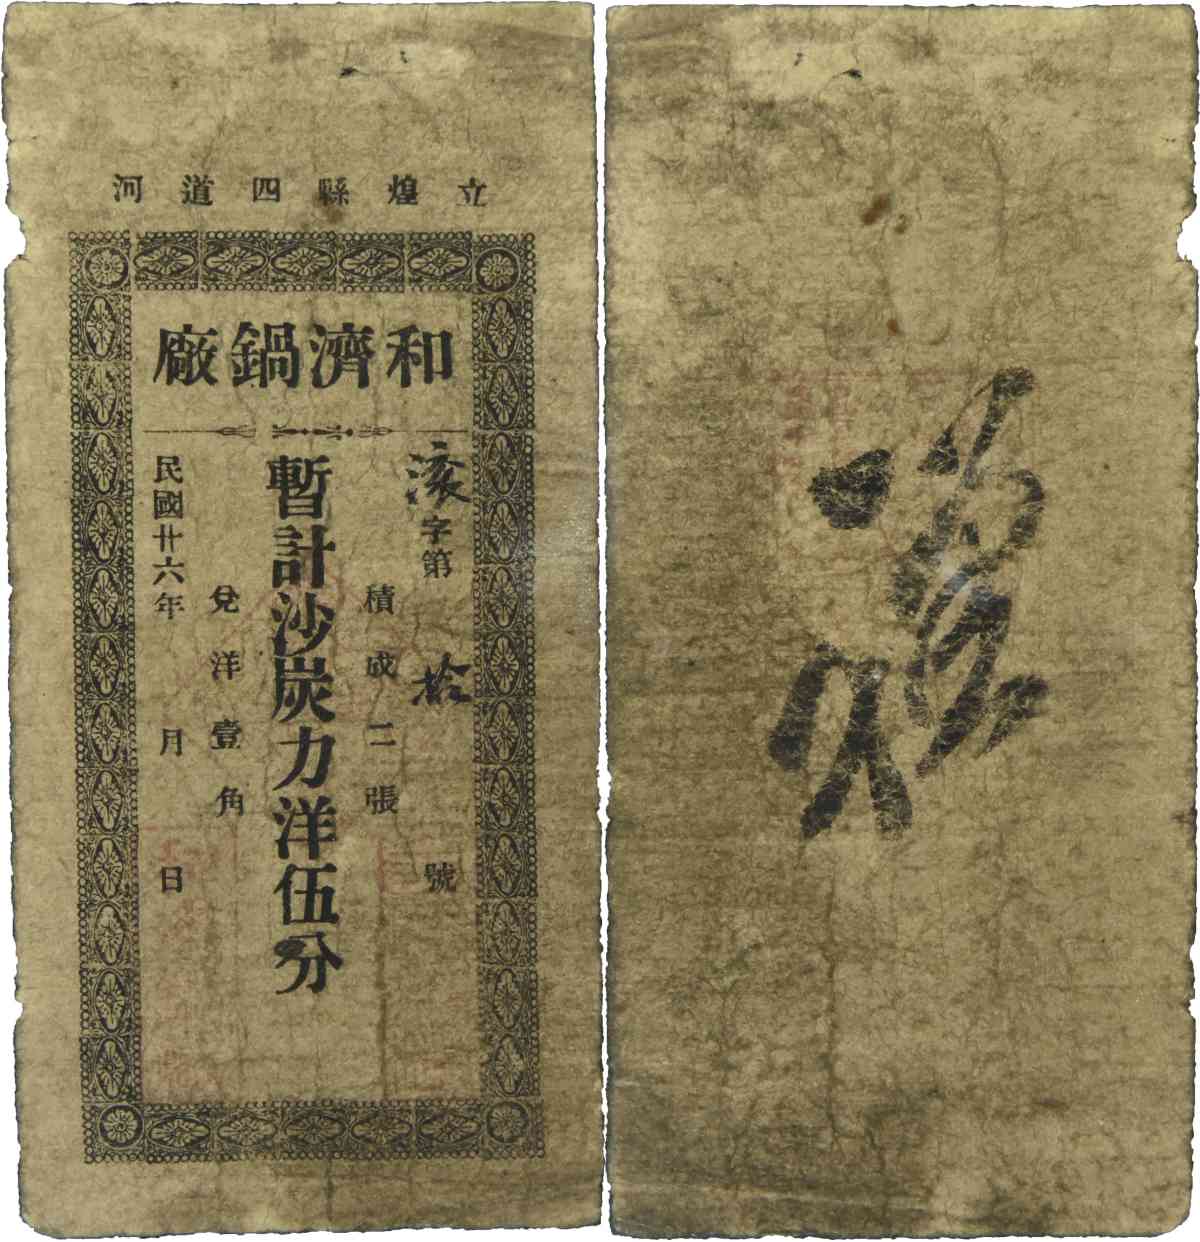 立煌縣四道河
和濟鍋廠
滚字第 拾 號
積成二張
暫計沙炭力洋伍分
兌洋壹角
民國廿六年 月 日